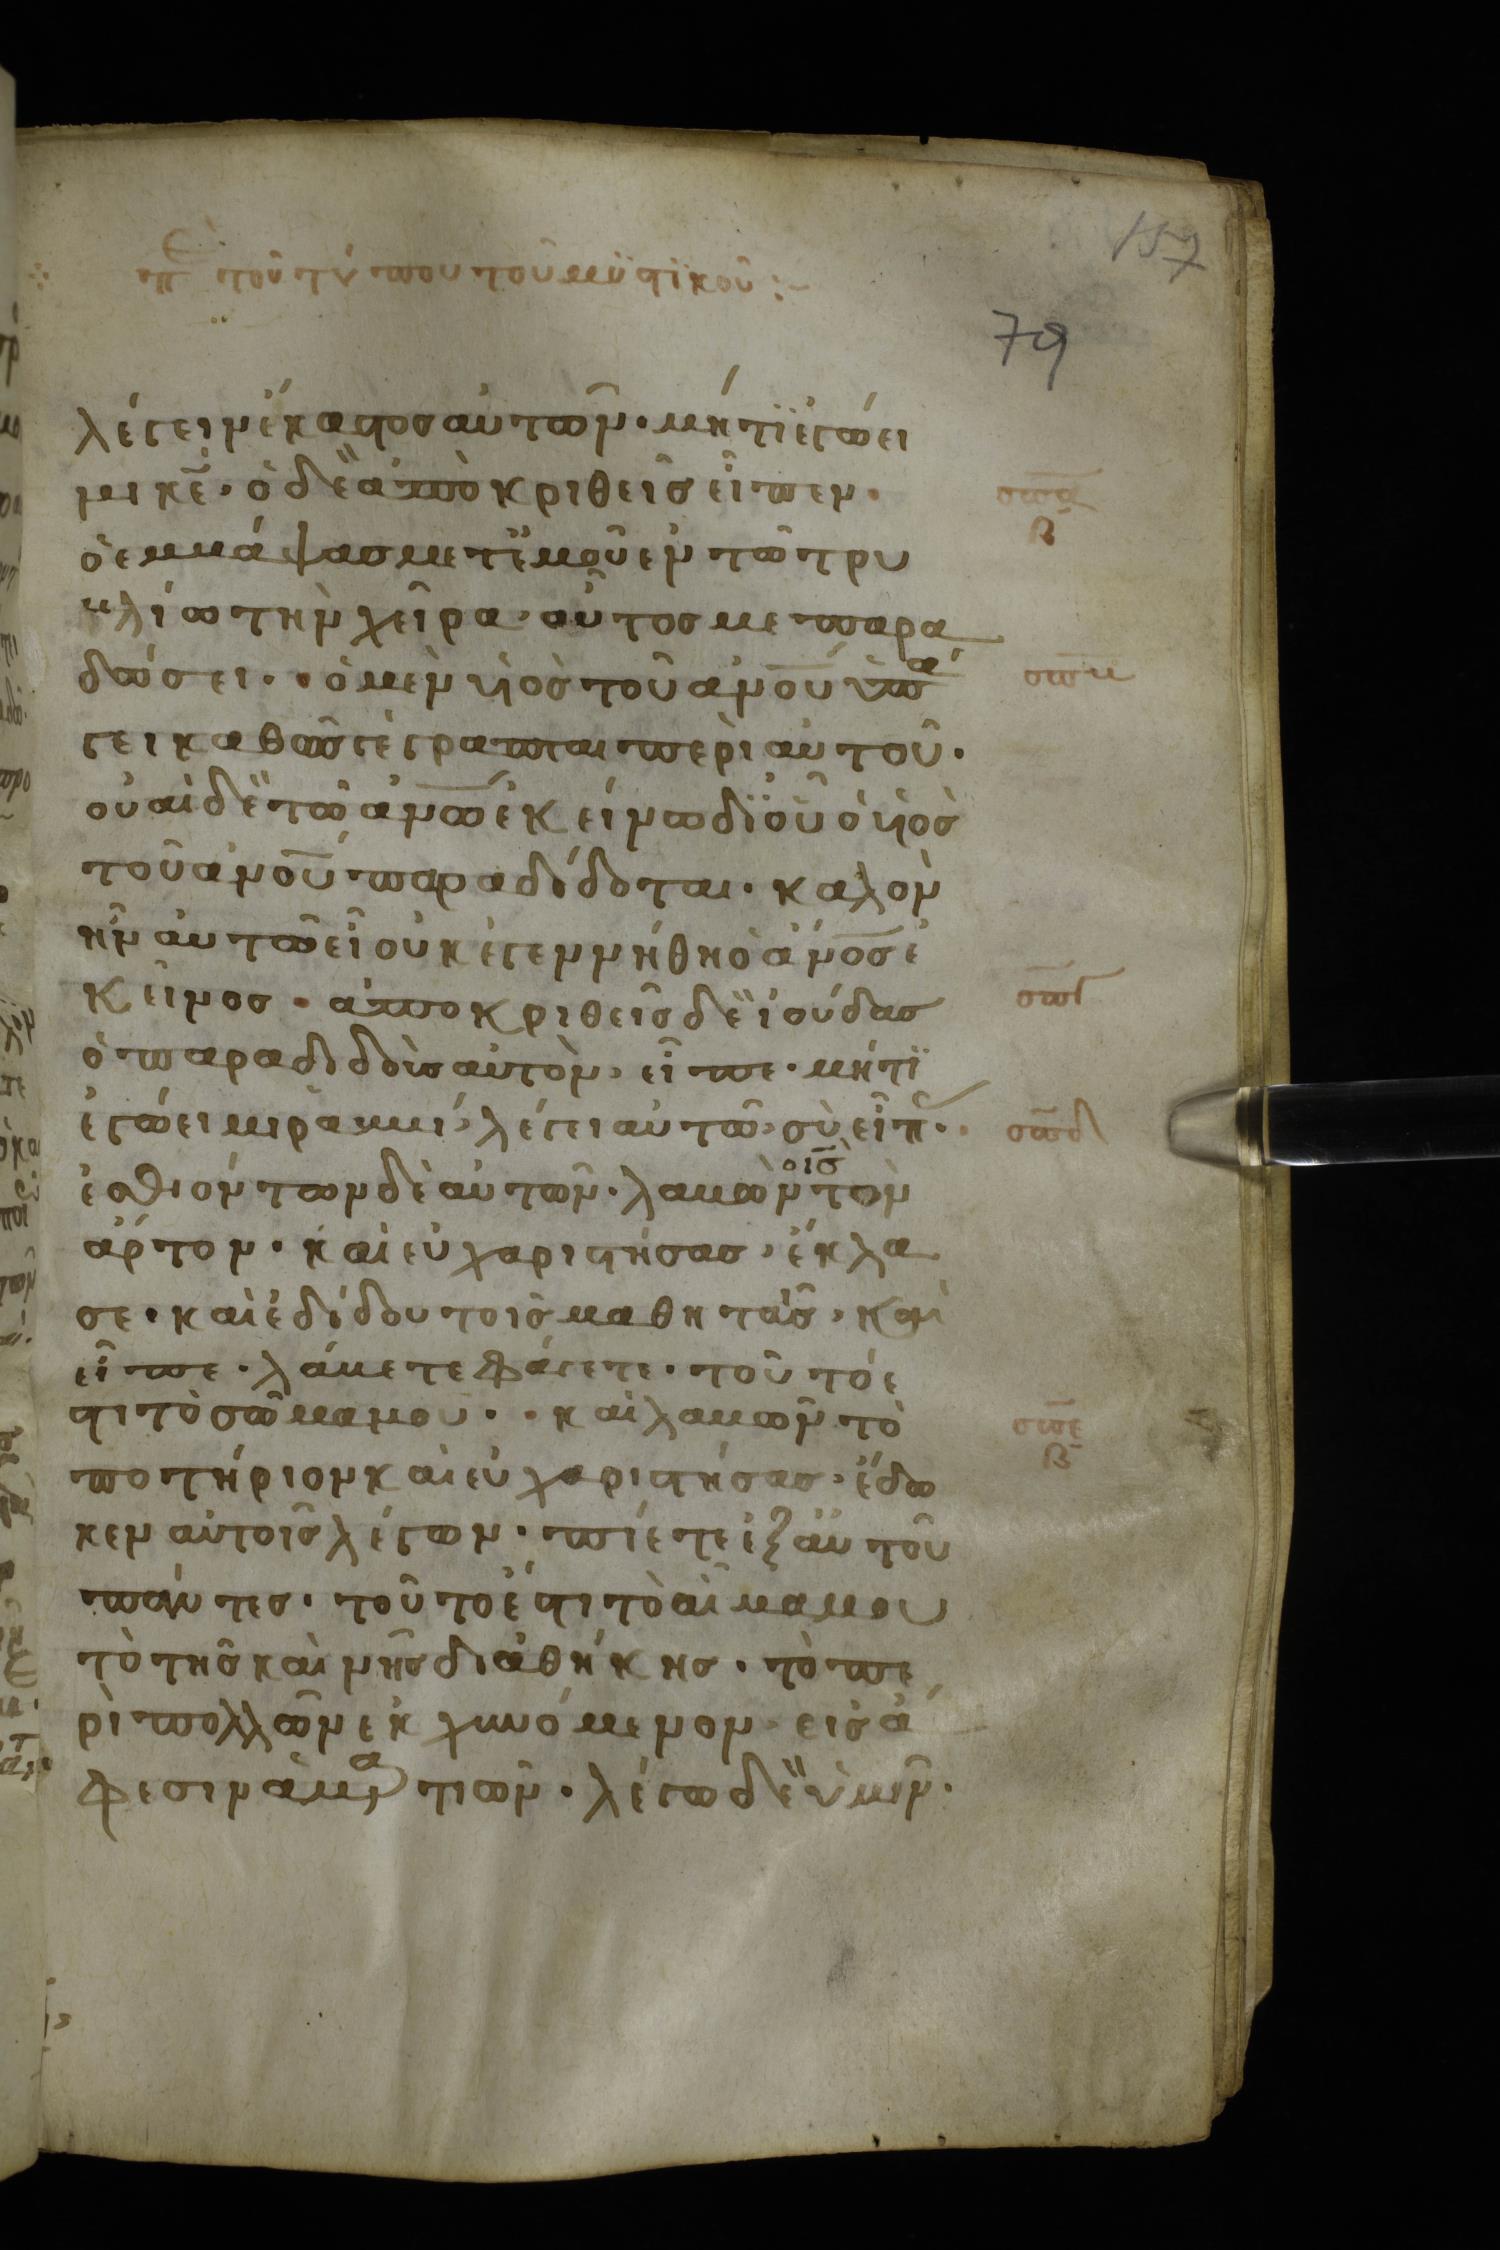 157
περ τοῦ τύπου τοῦ μυστικοῦ :~
79
λέγειν ἕκαστος αὐτῶν · μήτϊ ἐγώ εἰ
μι κε̄ · ὁ δὲ ἀποκριθεὶς εἶπεν ·
σπα
β
ὁ ἐμβάψας μετ' ἐμοῦ ἐν τῶ τρυ
βλίω τὴν χεῖρα · οὗτος με παρα
δώσει · ὁ μὲν υἱὸς τοῦ ἀνου̅ ὑπά
σπβ
γει καθὼς γέγραπται περὶ αὐτοῦ ·
οὐαὶ δὲ τῶ ἀνω̅ ἐκείνω δι' οὗ ὁ υἱὸς
τοῦ ἀνου̅ παραδίδοται · καλὸν
ἦν αὐτῶ εἰ οὐκ ἐγεννήθη ὁ ἀνος̅ ἐ
κεῖνος · ἀποκριθεὶς δὲ ἰούδας
σπγ
ὁ παραδιδοὺς αὐτὸν · εἶπε · μήτϊ
ἐγώ εἰμι ραββί · λέγει αὐτῶ · σὺ εἶπας ·
σπδ
ἐσθιόντων δὲ αὐτῶν · λαβὼν ὁ ις̅ τὸν
ἄρτον · καὶ εὐχαριστήσας · ἔκλα
σε · καὶ ἐδίδου τοῖς μαθηταῖς · καὶ
εἶπε · λάβετε φάγετε · τοῦτό ἐ
στι τὸ σῶμα μου · καὶ λαβὼν τὸ
σπε
β
ποτήριον καὶ εὐχαριστήσας · ἔδω
κεν αὐτοῖς λέγων · πίετε ἐξ αὐτοῦ
πάντες · τοῦτό ἐστι τὸ αἷμα μου
τὸ τῆς καινῆς διαθήκης · τὸ πε
ρὶ πολλῶν ἐκχυνόμενον · εἰς ἄ
φεσιν ἁμαρτιῶν · λέγω δὲ ὑμῖν ·